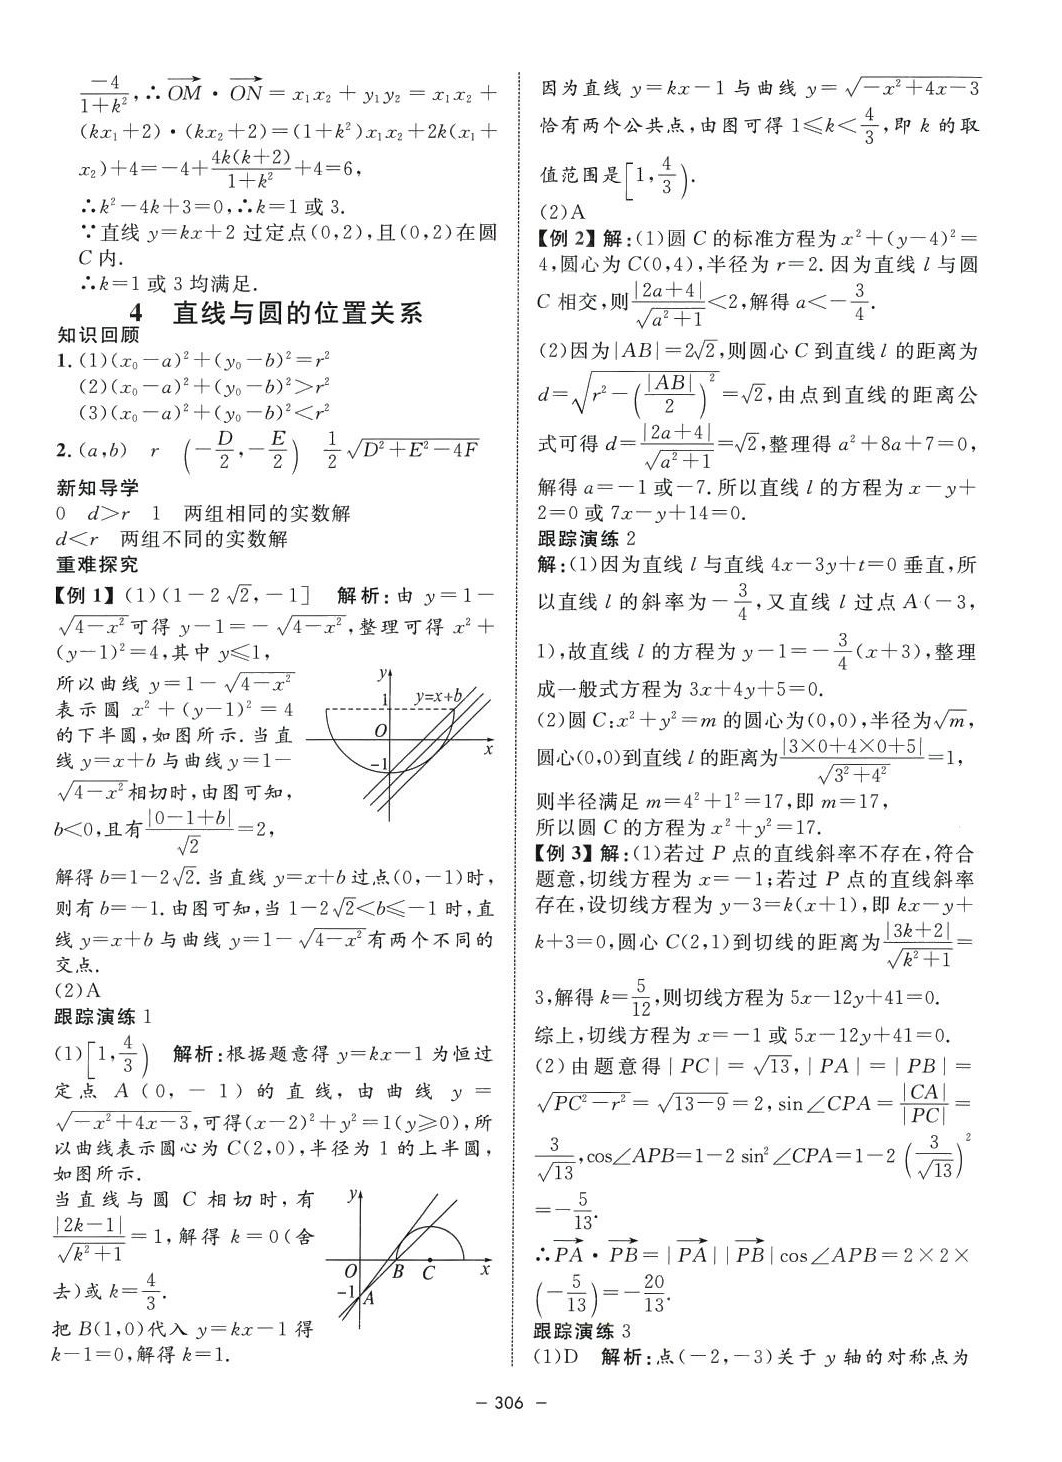 $\frac{-4}{1+k^2}$,∴$\overrightarrow{OM}$·$\overrightarrow{ON}$=x₁x₂+y₁y₂=x₁x₂+
(kx₁+2)·(kx₂+2)=(1+k²)x₁x₂+2k(x₁+
x₂)+4=-4+$\frac{4k(k+2)}{1+k^2}$+4=6,
∴k²-4k+3=0,∴k=1或3.
∵直线y=kx+2过定点(0,2),且(0,2)在圆
C内.
∴k=1或3均满足.
4 直线与圆的位置关系
知识回顾
1.(1)(x₀-a)²+(y₀-b)²=r²
(2)(x₀-a)²+(y₀-b)²>r²
(3)(x₀-a)²+(y₀-b)²<r²
2.(a,b) r $\left(-\frac{D}{2},-\frac{E}{2}\right)$ $\frac{1}{2}\sqrt{D^2+E^2-4F}$
新知导学
0 d>r 1 两组相同的实数解
d<r 两组不同的实数解
重难探究
【例1】(1)(1-2$\sqrt{2}$,-1] 解析:由y=1-
$\sqrt{4-x^2}$可得y-1=-$\sqrt{4-x^2}$,整理可得x²+
(y-1)²=4,其中y≤1,
所以曲线y=1-$\sqrt{4-x^2}$
表示圆x²+(y-1)²=4
的下半圆,如图所示.当直
线y=x+b与曲线y=1-
$\sqrt{4-x^2}$相切时,由图可知,
b<0,且有$\frac{|0-1+b|}{\sqrt{2}}$=2,
y
1
y=x+b
O
x
-1
解得b=1-2$\sqrt{2}$.当直线y=x+b过点(0,-1)时,
则有b=-1.由图可知,当1-2$\sqrt{2}$<b≤-1时,直
线y=x+b与曲线y=1-$\sqrt{4-x^2}$有两个不同的
交点.
(2)A
跟踪演练1
(1)$\left[1,\frac{4}{3}\right)$ 解析:根据题意得y=kx-1为恒过
定点A(0,-1)的直线,由曲线y=
$\sqrt{-x^2+4x-3}$,可得(x-2)²+y²=1(y≥0),所
以曲线表示圆心为C(2,0),半径为1的上半圆,
如图所示.
当直线与圆C相切时,有
$\frac{|2k-1|}{\sqrt{k^2+1}}$=1,解得k=0(舍
去)或k=$\frac{4}{3}$.
把B(1,0)代入y=kx-1得
k-1=0,解得k=1.
y
O
B
C
x
-1
A
因为直线y=kx-1与曲线y=$\sqrt{-x^2+4x-3}$
恰有两个公共点,由图可得1≤k<$\frac{4}{3}$,即k的取
值范围是$\left[1,\frac{4}{3}\right)$.
(2)A
【例2】解:(1)圆C的标准方程为x²+(y-4)²=
4,圆心为C(0,4),半径为r=2.因为直线l与圆
C相交,则$\frac{|2a+4|}{\sqrt{a^2+1}}$<2,解得a<-$\frac{3}{4}$.
(2)因为|AB|=2$\sqrt{2}$,则圆心C到直线l的距离为
d=$\sqrt{r^2-\left(\frac{|AB|}{2}\right)^2}$=$\sqrt{2}$,由点到直线的距离公
式可得d=$\frac{|2a+4|}{\sqrt{a^2+1}}$=$\sqrt{2}$,整理得a²+8a+7=0,
解得a=-1或-7.所以直线l的方程为x-y+
2=0或7x-y+14=0.
跟踪演练2
解:(1)因为直线l与直线4x-3y+t=0垂直,所
以直线l的斜率为-$\frac{3}{4}$,又直线l过点A(-3,
1),故直线l的方程为y-1=-$\frac{3}{4}$(x+3),整理
成一般式方程为3x+4y+5=0.
(2)圆C:x²+y²=m的圆心为(0,0),半径为$\sqrt{m}$,
圆心(0,0)到直线l的距离为$\frac{|3×0+4×0+5|}{\sqrt{3^2+4^2}}$=1,
则半径满足m=4²+1²=17,即m=17,
所以圆C的方程为x²+y²=17.
【例3】解:(1)若过P点的直线斜率不存在,符合
题意,切线方程为x=-1;若过P点的直线斜率
存在,设切线方程为y-3=k(x+1),即kx-y+
k+3=0,圆心C(2,1)到切线的距离为$\frac{|3k+2|}{\sqrt{k^2+1}}$=
3,解得k=$\frac{5}{12}$,则切线方程为5x-12y+41=0.
综上,切线方程为x=-1或5x-12y+41=0.
(2)由题意得|PC|=$\sqrt{13}$,|PA|=|PB|=
$\sqrt{PC^2-r^2}$=$\sqrt{13-9}$=2,sin∠CPA=$\frac{|CA|}{|PC|}$=
$\frac{3}{\sqrt{13}}$,cos∠APB=1-2sin²∠CPA=1-2$\left(\frac{3}{\sqrt{13}}\right)^2$
=-$\frac{5}{13}$.
∴$\overrightarrow{PA}$·$\overrightarrow{PB}$=|$\overrightarrow{PA}$||$\overrightarrow{PB}$|cos∠APB=2×2×
$\left(-\frac{5}{13}\right)$=-$\frac{20}{13}$.
跟踪演练3
(1)D 解析:点(-2,-3)关于y轴的对称点为
- 306 -